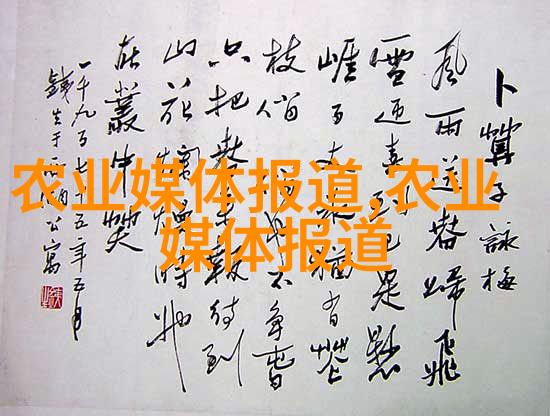 农业媒体报道,农业
媒体报道
卜算子 詠梅
風雨送春歸飛
雪迎春到已是懸
崖百丈冰猶有花
枝俏俏也不爭春
只把春來報待到
山花爛熳時她
在叢中笑
一千九百七十五年五月
公寓